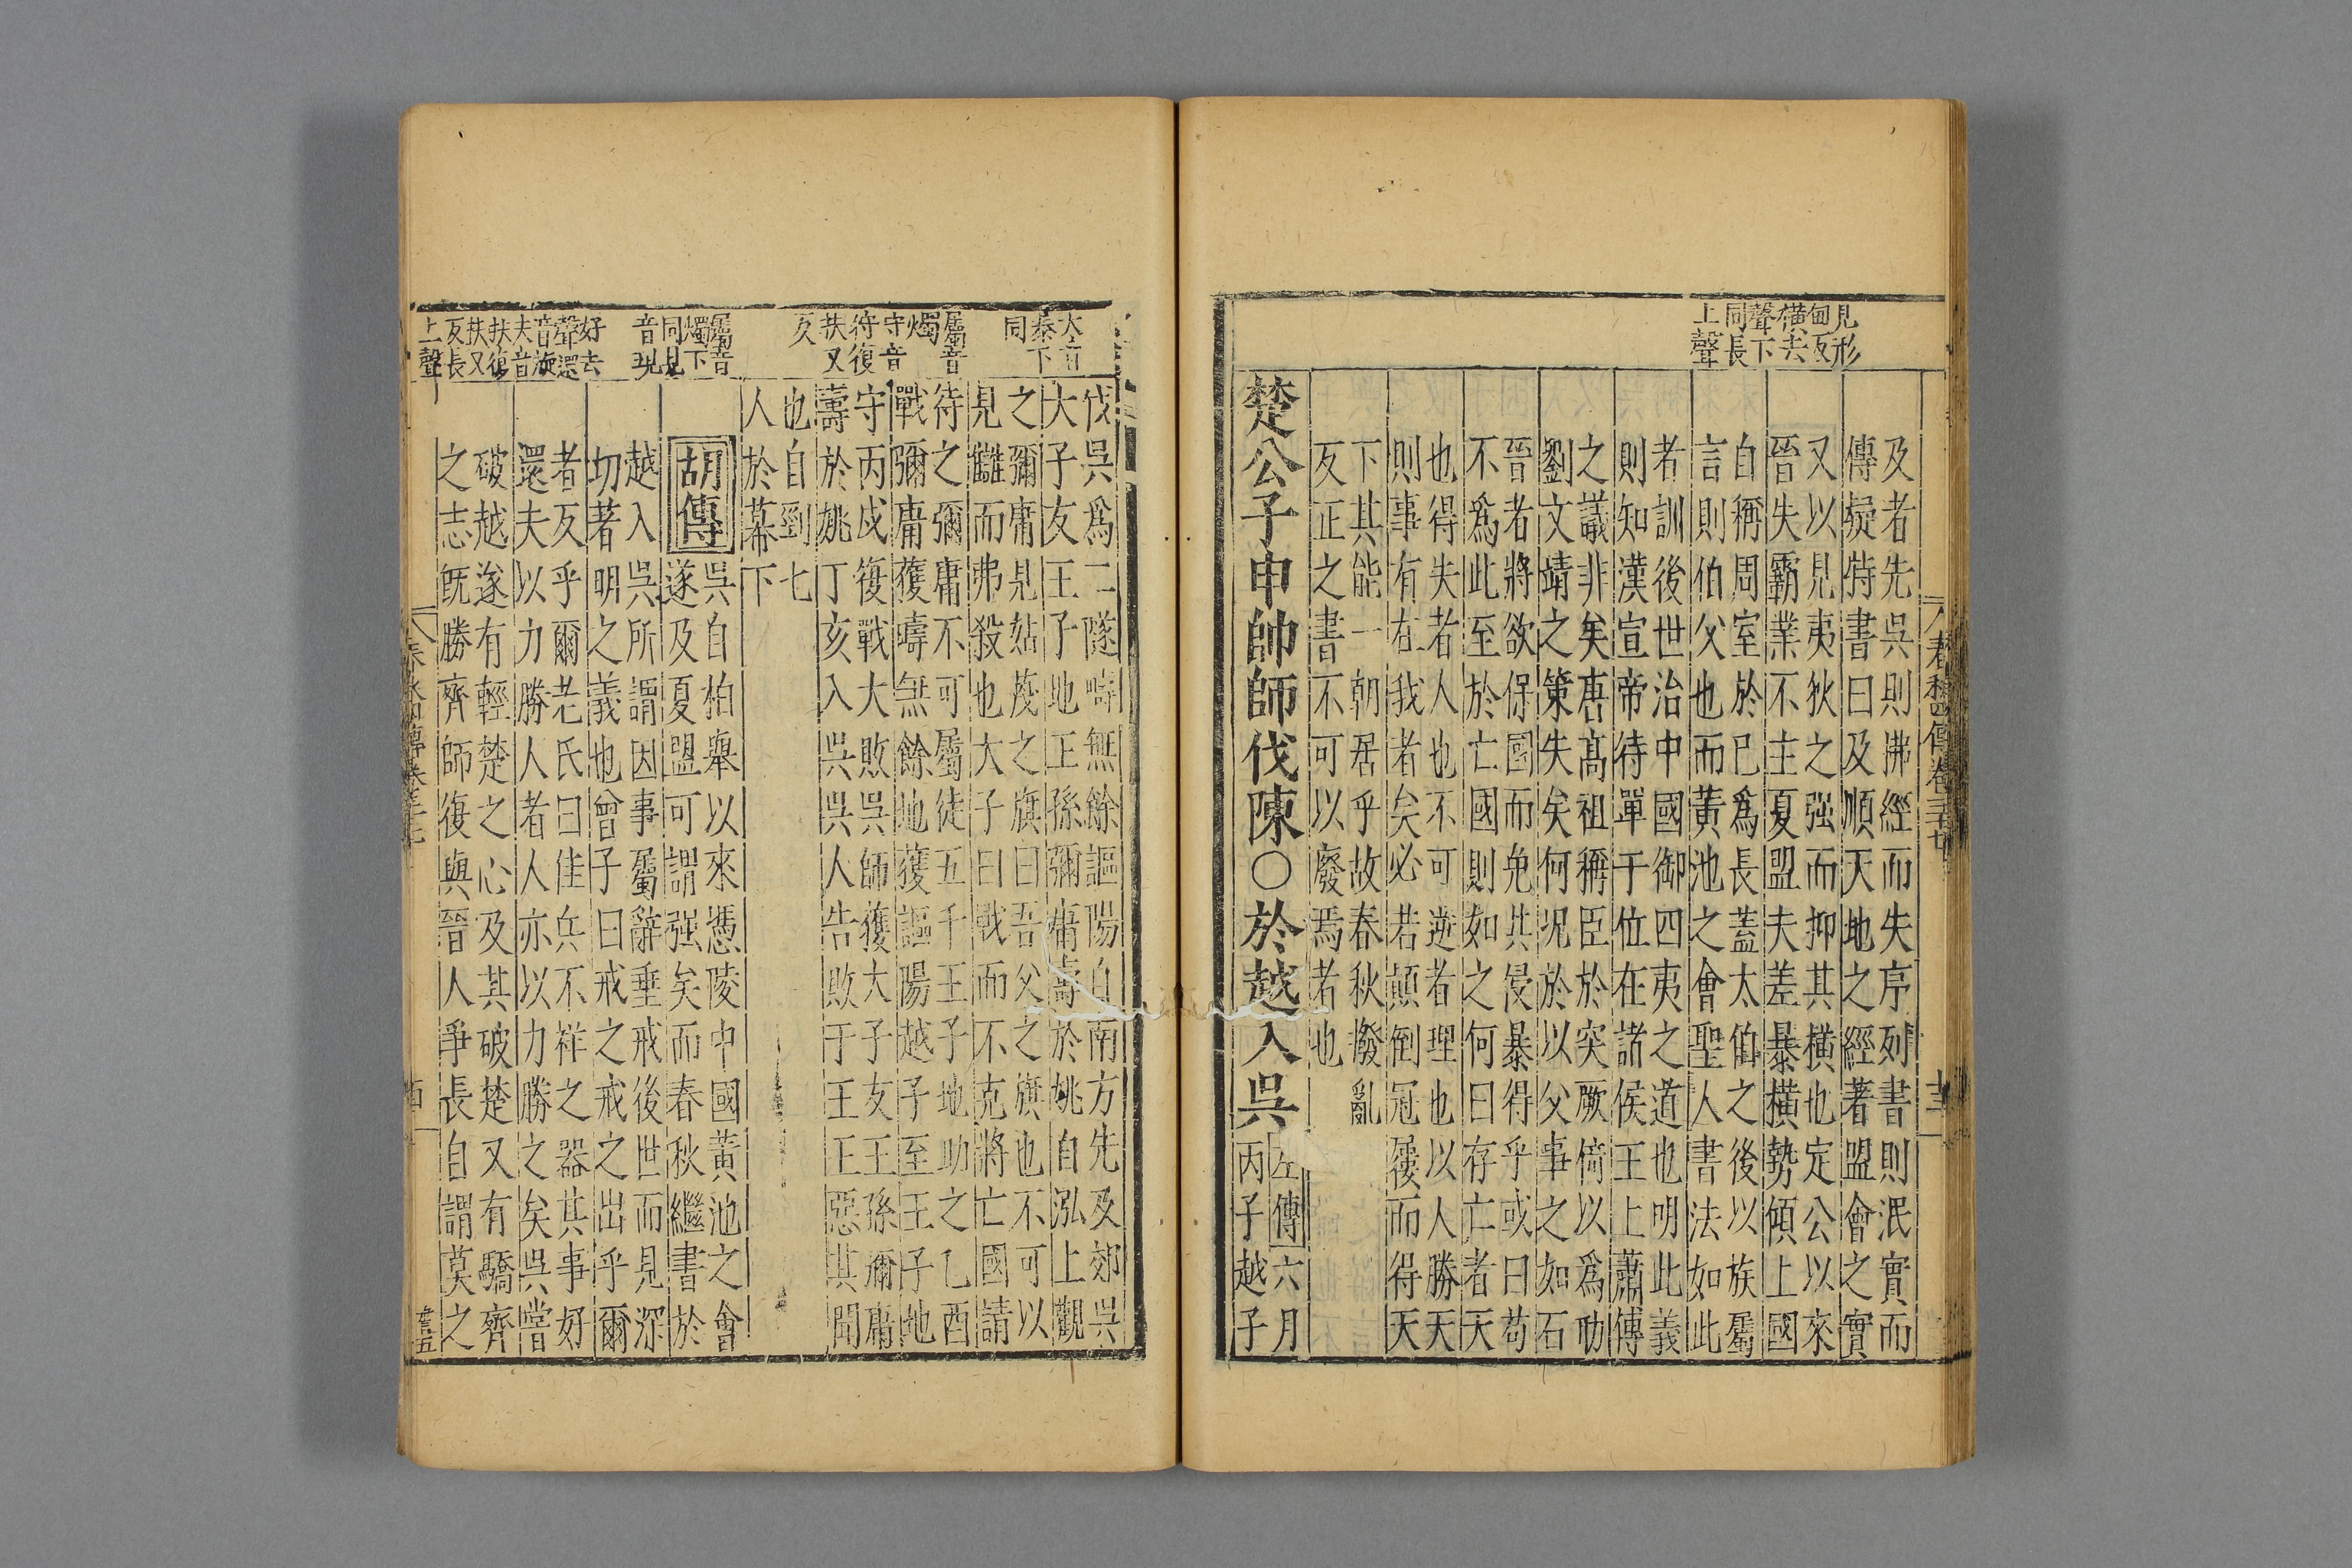 見形
甸反
橫去
聲下
同長
上聲
及者先吳則沸經而失序列書則泯實而
傳疑特書曰及順天地之經著盟會之實
又以見夷狄之强而抑其橫也定公以來
晉失霸業不主夏盟夫差暴橫勢傾上國
自稱周室於已爲長蓋太伯之後以族屬
言則伯父也而黃池之會聖人書法如此
者訓後世治中國御四夷之道也明此義
則知漢宣帝待單于位在諸侯王上蕭傳
之議非矣唐高祖稱臣於突厥倚以爲助
劉文靖之策失矣何况於以父事之如石
晉者將欲保國而免其侵暴得乎或曰苟
不爲此至於亡國則如之何曰存亡者天
也得失者人也不可逆者理也以人勝天
則事有在我者矣必若顛倒冠屨而得天
下其能一朝居乎故春秋撥亂
反正之書不可以廢焉者也
楚公子申帥師伐陳○於越入吳
左傳六月
丙子越子
春秋四傳卷三十七
十三
大音
泰下
同
屬音
燭
守音
狩復
扶又
反
屬音
燭下
同見
音現
好去
聲還
音旋
夫音
扶復
扶又
反長
上聲
伐吳爲二隧疇無餘謳陽自南方先及郊吳
大子友王子地王孫彌庸壽於姚自泓上觀
之彌庸見姑蔑之旗曰吾父之旗也不可以
見讎而弗殺也大子曰戰而不克將亡國請
待之彌庸不可屬徒五千王子地助之乙酉
戰彌庸獲疇無餘地獲謳陽越子至王子地
守丙戌復戰大敗吳師獲大子友王孫彌庸
壽於姚丁亥入吳吳人告敗于王王惡其聞
也自剄七
人於幕下
胡傳
吳自柏舉以來憑陵中國黃池之會
遂及夏盟可謂强矣而春秋繼書於
越入吳所謂因事屬辭垂戒後世而見深
切著明之義也曾子曰戒之戒之出乎爾
者反乎爾老氏曰佳兵不祥之器其事好
還夫以力勝人者人亦以力勝之矣吳嘗
破越遂有輕楚之心及其破楚又有驕齊
之志旣勝齊師復與晉人爭長自謂莫之
春秋四傳卷三十七